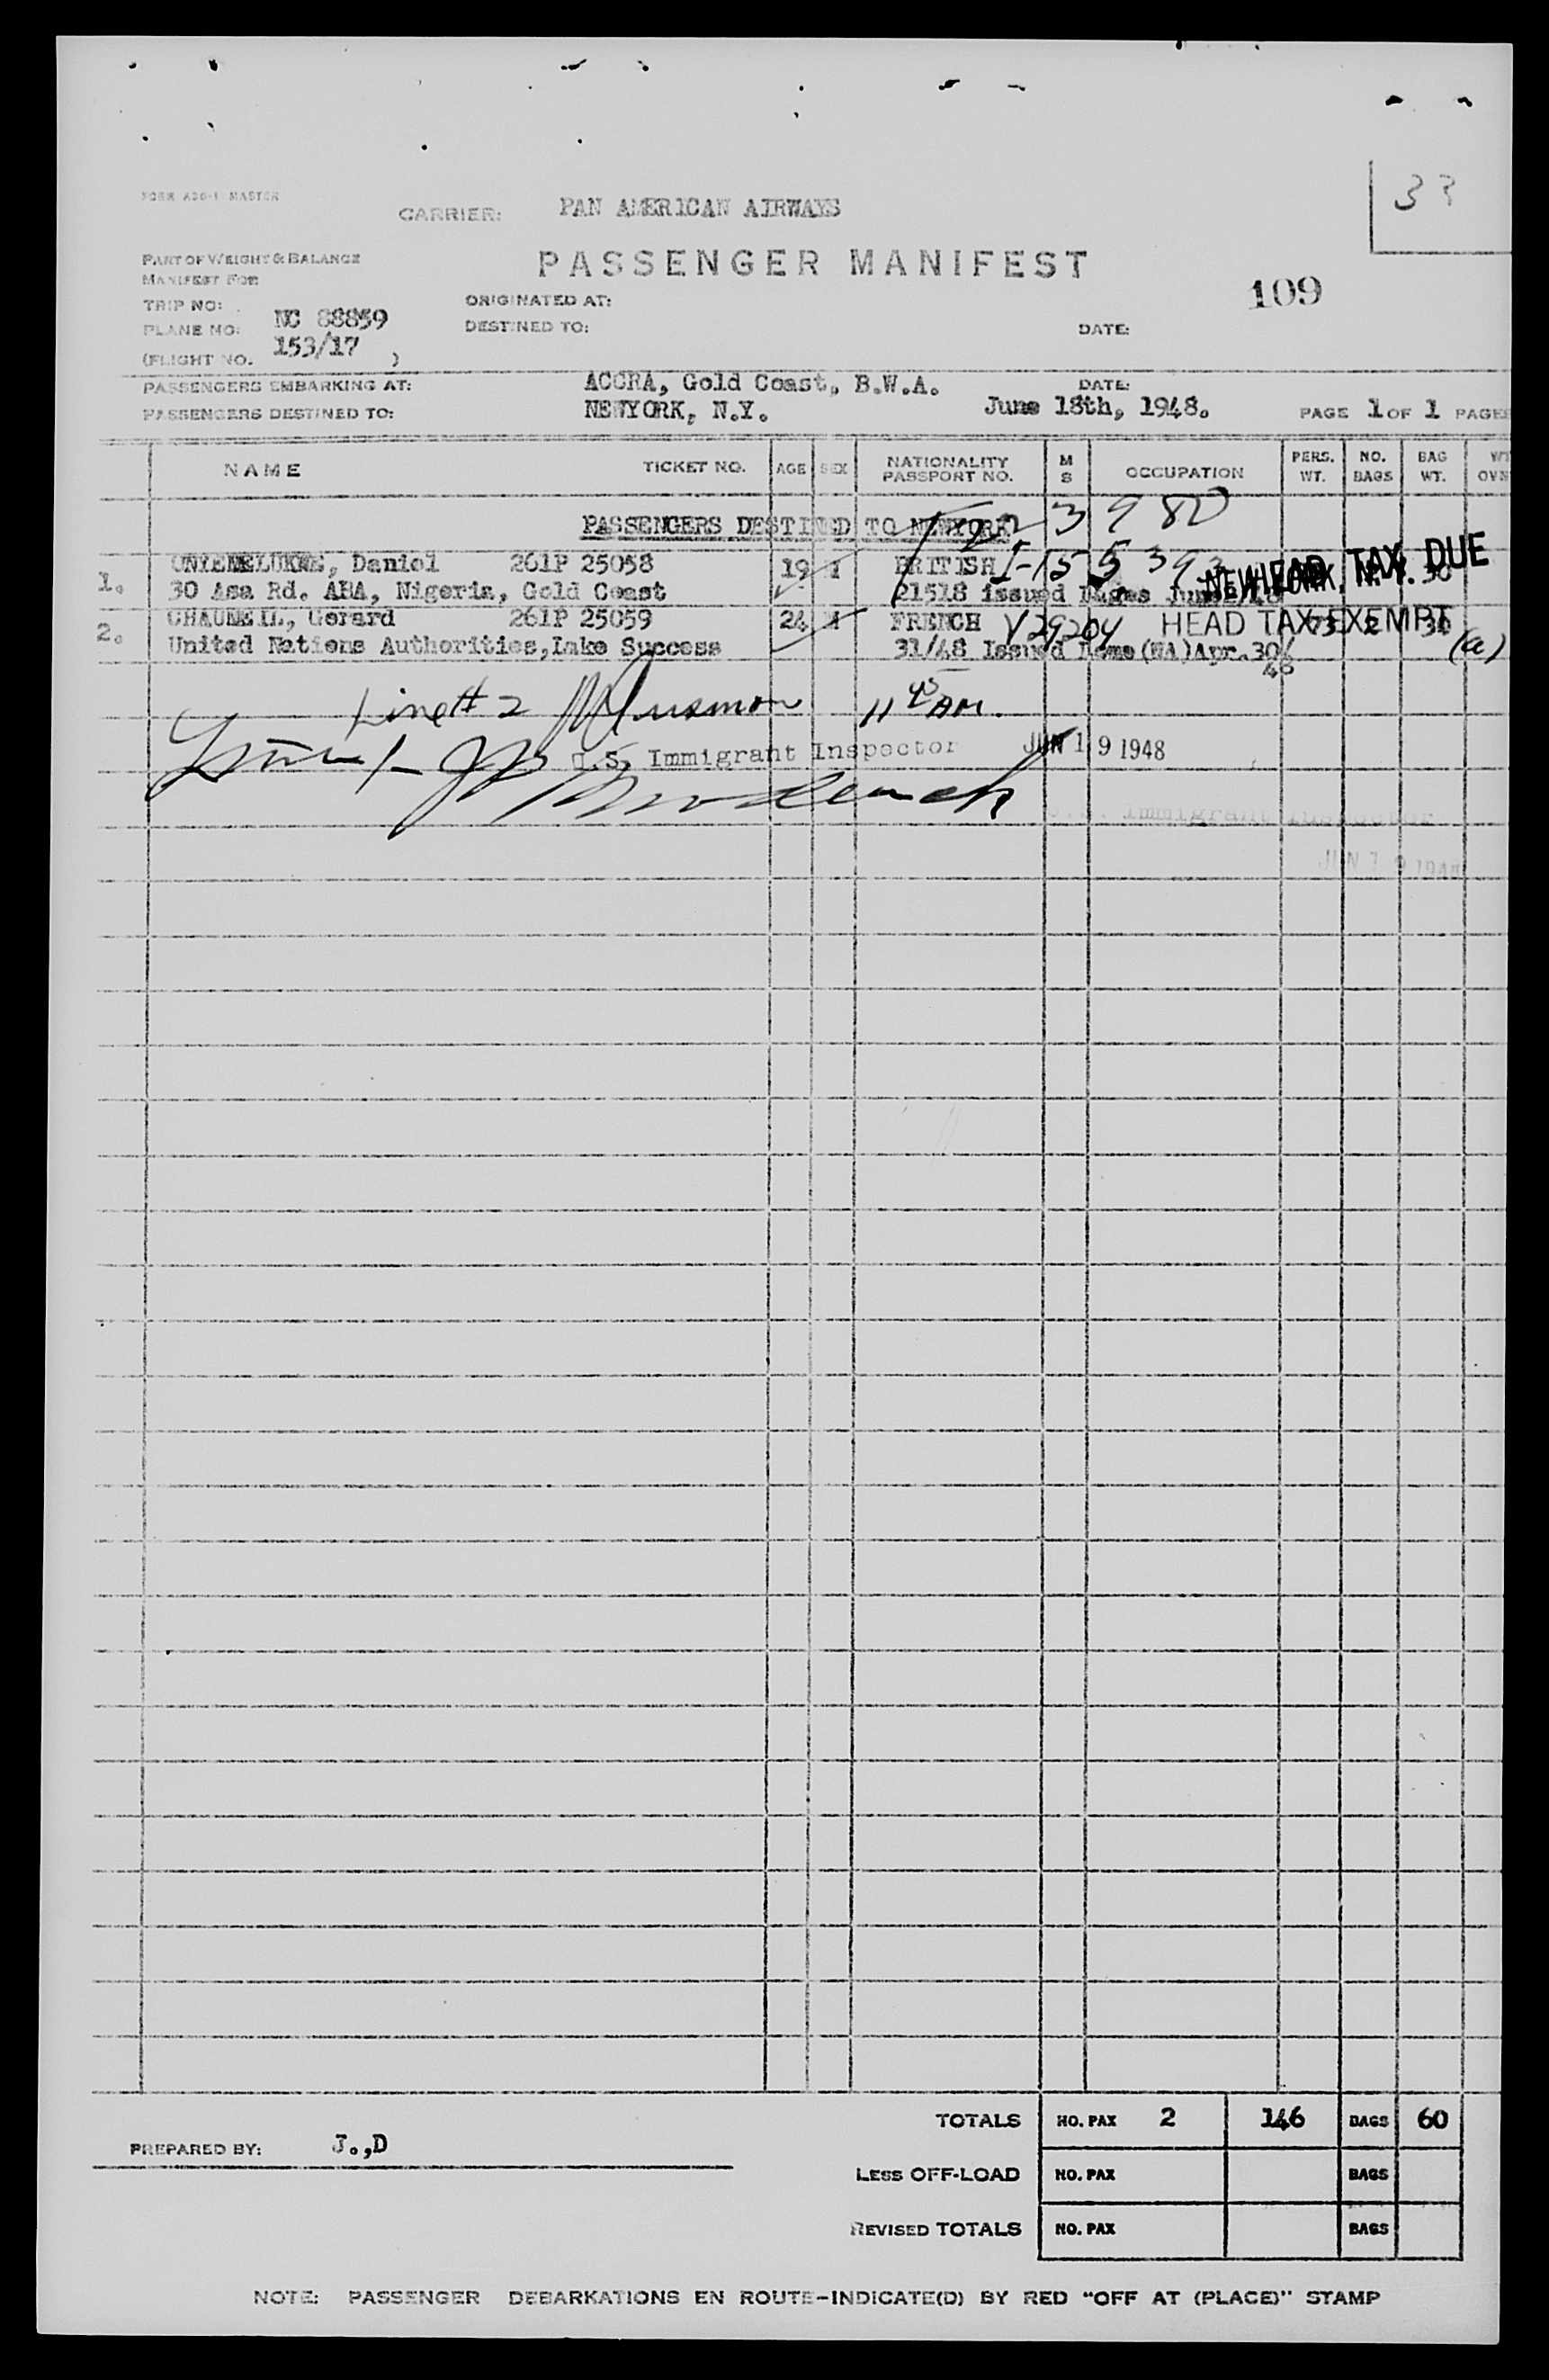 FORM A30-1 MASTER
33
CARRIER: PAN AMERICAN AIRWAYS
PART OF WEIGHT & BALANCE
MANIFEST FOR
PASSENGER MANIFEST
109
TRIP NO:
ORIGINATED AT:
PLANE NO: NC 88859
DESTINED TO:
DATE:
(FLIGHT NO. 153/17 )
PASSENGERS EMBARKING AT: ACCRA, Gold Coast, B.W.A. DATE:
PASSENGERS DESTINED TO: NEWYORK, N.Y. June 18th, 1948. PAGE 1 OF 1 PAGES
NAME TICKET NO. AGE SEX NATIONALITY PASSPORT NO. M S OCCUPATION PERS. WT. NO. BAGS BAG WT.
PASSENGERS DESTINED TO NEWYORK
3980
1. Daniel 261P 25058 19 BRITISH I-155393 HEAD TAX DUE
30 Asa Rd. ABA, Nigeria, Gold Coast 21518 issued NEW YORK, N.Y. 30
2. CHAUMEIL, Gerard 261P 25059 24 FRENCH V29204 HEAD TAX EXEMPT 30
United Nations Authorities, Lake Success 31/48 Issued (WA) Apr. 30/ (a)
48
Line # 2 11 45 AM.
U.S. Immigrant Inspector JUN 19 1948
Immigrant Inspector
JUN 19 1948
TOTALS NO. PAX 2 146 BAGS 60
PREPARED BY: J.,D
LESS OFF-LOAD NO. PAX BAGS
REVISED TOTALS NO. PAX BAGS
NOTE: PASSENGER DEBARKATIONS EN ROUTE-INDICATE(D) BY RED "OFF AT (PLACE)" STAMP